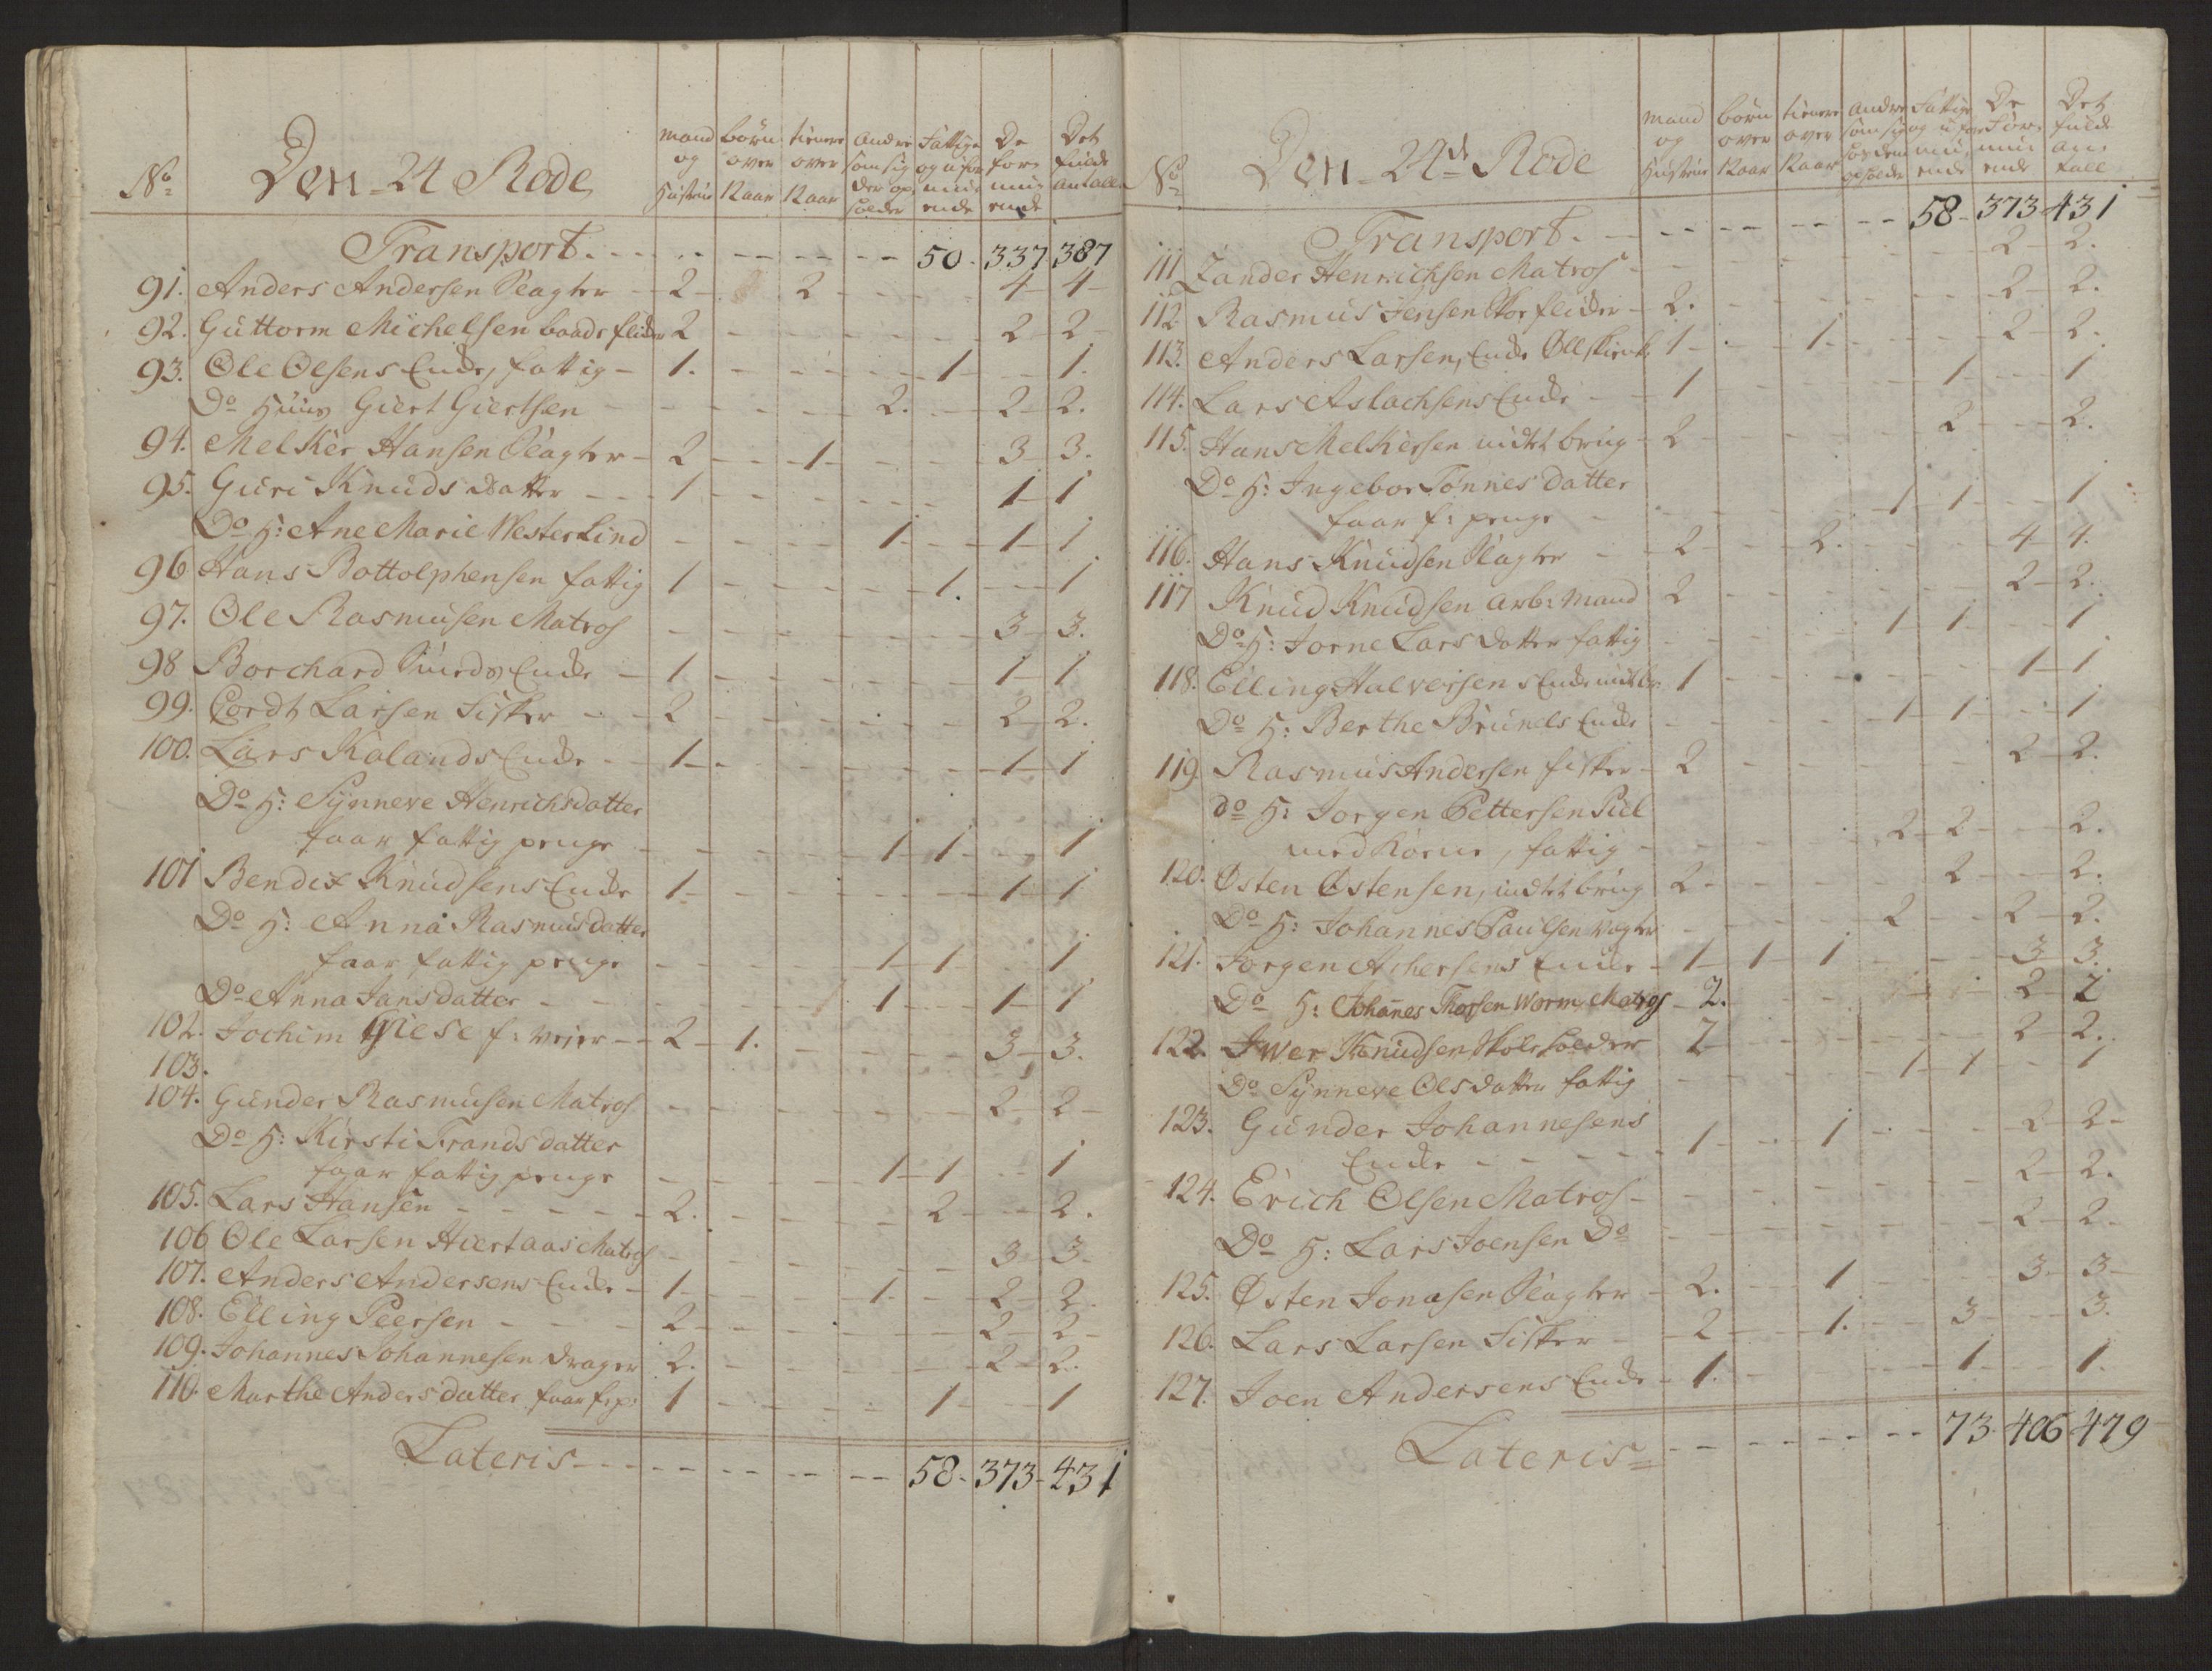 No Den 24 Rode mand og Hustrue børn over 12 aar tienere over 12 aar Andre som sig der op holder Fattige og ufor mu ende De for mu ende Det fulde Antall
Transport 50 337 387
91. Anders Andersen Slagter 2 2 4 4
92. Guttorm Michelsen baads flicker 2 2 2
93. Ole Olsens Encke, fattig 1. 1 1.
Do Huus Giert Giertsen 2. 2 2.
94. Melkier Hansen Slagter 2 1 3 3.
95. Guri Knuds datter 1 1 1
Do H: Ane Marie Westerlind 1 1 1
96 Hans Bottolphensen fattig 1 1. 1
97. Ole Rasmusen Matros 3 3.
98 Borchard Encke 1 1 1
99. Cordt Larsen Fisker 2 2 2.
100. Lars Kalands Encke 1 1 1
Do H: Synneve Henrichsdatter
faar fattig penge 1 1 1
101 Bendix Knudsens Encke 1 1 1
Do H: Anna Rasmusdatter
faar fattig penge 1 1 1
Do Anna Jansdatter 1 1 1
102. Jochim Giese f: veier 2 1. 3 3.
103.
104. Gunder Rasmusen Matros 2 2
Do H: Kirsti Frandsdatter
faar fattig penge 1 1 1
105. Lars Hansen 2. 2 2.
106 Ole Larsen Hiertaas Matros 3 3
107. Anders Andersens Encke 1 1 2 2.
108. Elling Peersen 2 2 2
109. Johannes Johannesen drager 2. 2 2.
110. Marthe Andersdatter faar f: p: 1 1 1
Lateris 58 373 431
No Den 24de Rode mand og Hustrue børn over 12 aar tienere over 12 aar Andre som sig op holder Fattige og ufor mu ende De For mu ende Det fulde an tall
Transport 58 373 431
111 Zander Henrichsen Matros 2 2.
112 Rasmus Jensen Skoeflicker 2. 2 2.
113. Anders Larsens Encke Øllskienk 1 1 2 2.
114. Lars Aslachsens Encke 1 1 1
115. Hans Melkiersen intet brug 2 2 2.
Do H: Ingebor Tønnes datter
faar f: penge 1 1 1
116. Hans Knudsen Slagter 2 2. 4 4.
117 Knud Knudsen arb: mand 2 2 2.
Do H: Jorne Lars datter fattig 1 1 1
118. Elling Halversens Encke intet br: 1 1 1
Do H: Berthe Bruuels Encke 1 1 1
119 Rasmus Andersen fisker 2 2 2.
do H: Jorgen Pettersen Piil
med Kone, fattig 2 2 2.
120. Østen Østensen, intet brug 2 2 2.
Do H: Johannes Paulsen vægter 2 2 2.
121. Jorgen Achersens Encke 1 1 1 3 3.
Do H: Johanes Thorsen Worm, Matros 2. 2 2
122. Iwer Knudsen Skoleholder 2 2 2.
Do Synneve Olsdatter fattig 1 1 1
123. Gunder Johannesens
Encke 1 1 2 2
124. Erich Olsen Matros 2 2.
Do H: Lars Joensen Do 2 2
125. Østen Jonasen Slagter 2. 1 3 3
126. Lars Larsen Fisker 2 1. 3 3.
127. Joen Andersens Encke 1. 1 1.
Lateris 73 406 479